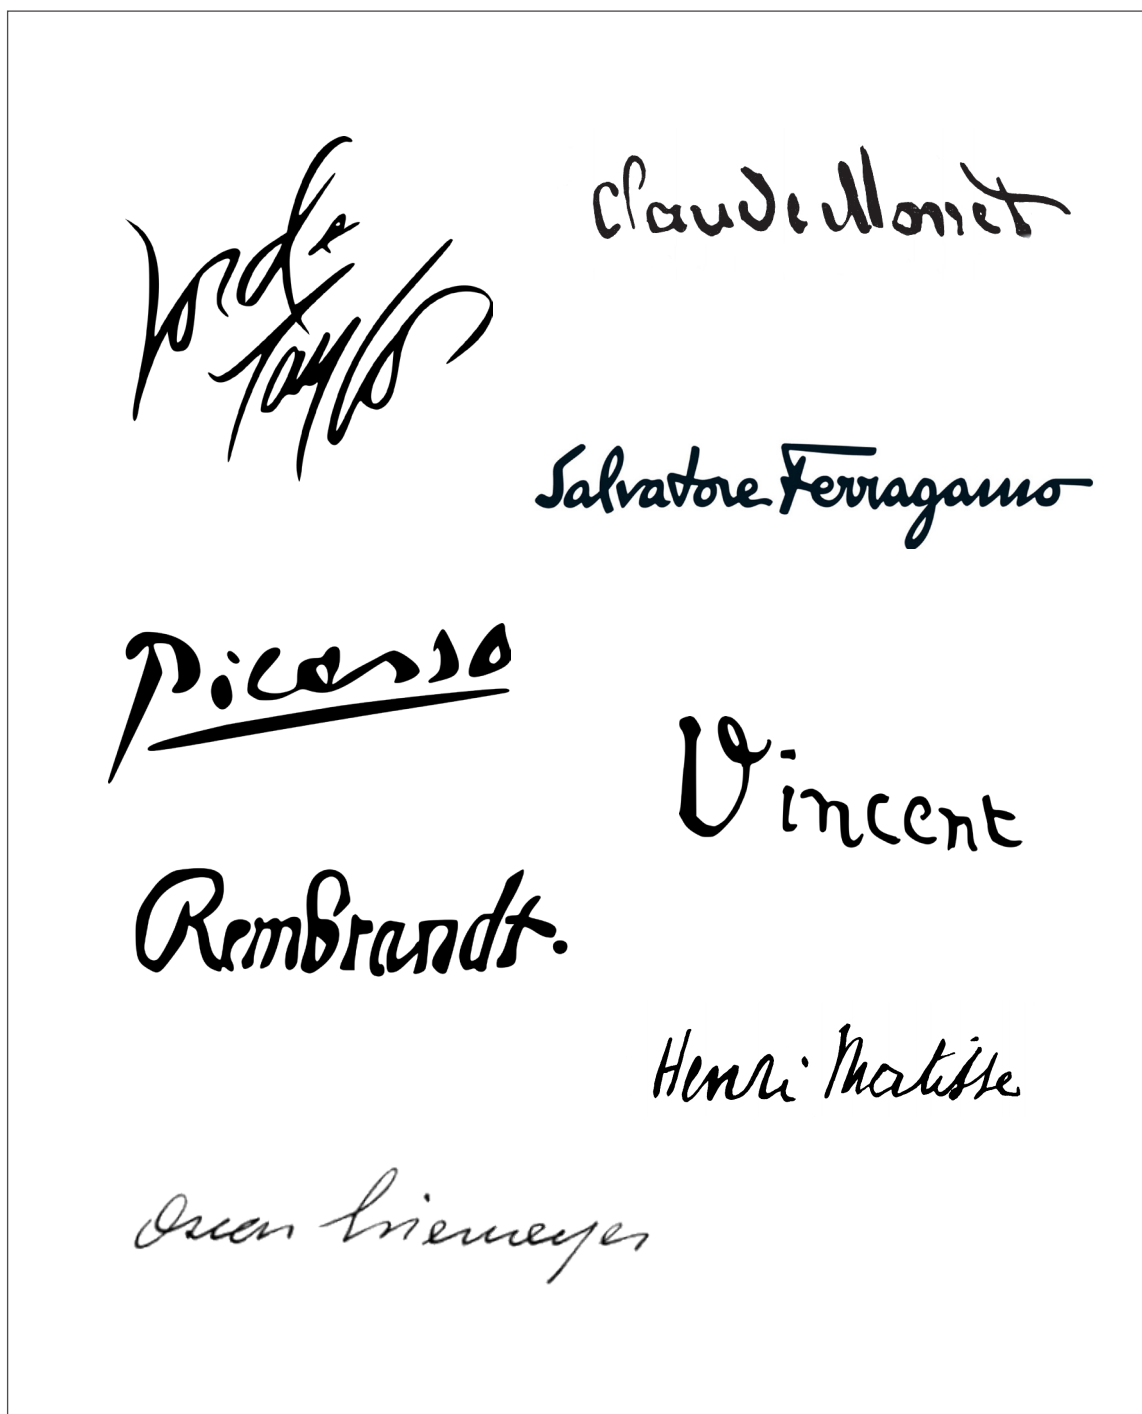 Lord &
Taylor
Claude Monet
Salvatore Ferragamo
Picasso
Vincent
Rembrandt.
Henri Matisse
Oscar Niemeyer